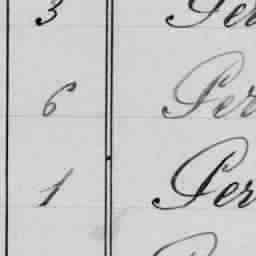 3 Per
6 Per
1 Per